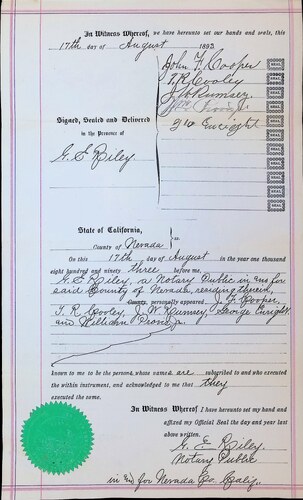 In Witness Whereof, we have hereunto set our hands and seals, this
17th day of August 1893
John F Hooper SEAL
T. R. Cooley SEAL
J W Rumsey SEAL
Wm SEAL
Geo Enright SEAL
SEAL
SEAL
SEAL
SEAL
SEAL
SEAL
Signed, Sealed and Delivered
in the Presence of
G. E Riley
State of California,
County of Nevada } ss:
On this 17th day of August in the year one thousand
eight hundred and ninety three before me,
G. E. Riley, a Notary Public in and for
said County of Nevada, residing therein,
County personally appeared J. F. Hooper,
T. R. Cooley, J. W. Rumsey, George Enright
and William
known to me to be the persons whose names are subscribed to and who executed
the within instrument, and acknowledged to me that they
executed the same.
In Witness Whereof I have hereunto set my hand and
affixed my Official Seal the day and year last
above written.
G. E Riley
Notary Public
in and for Nevada Co. Calif.